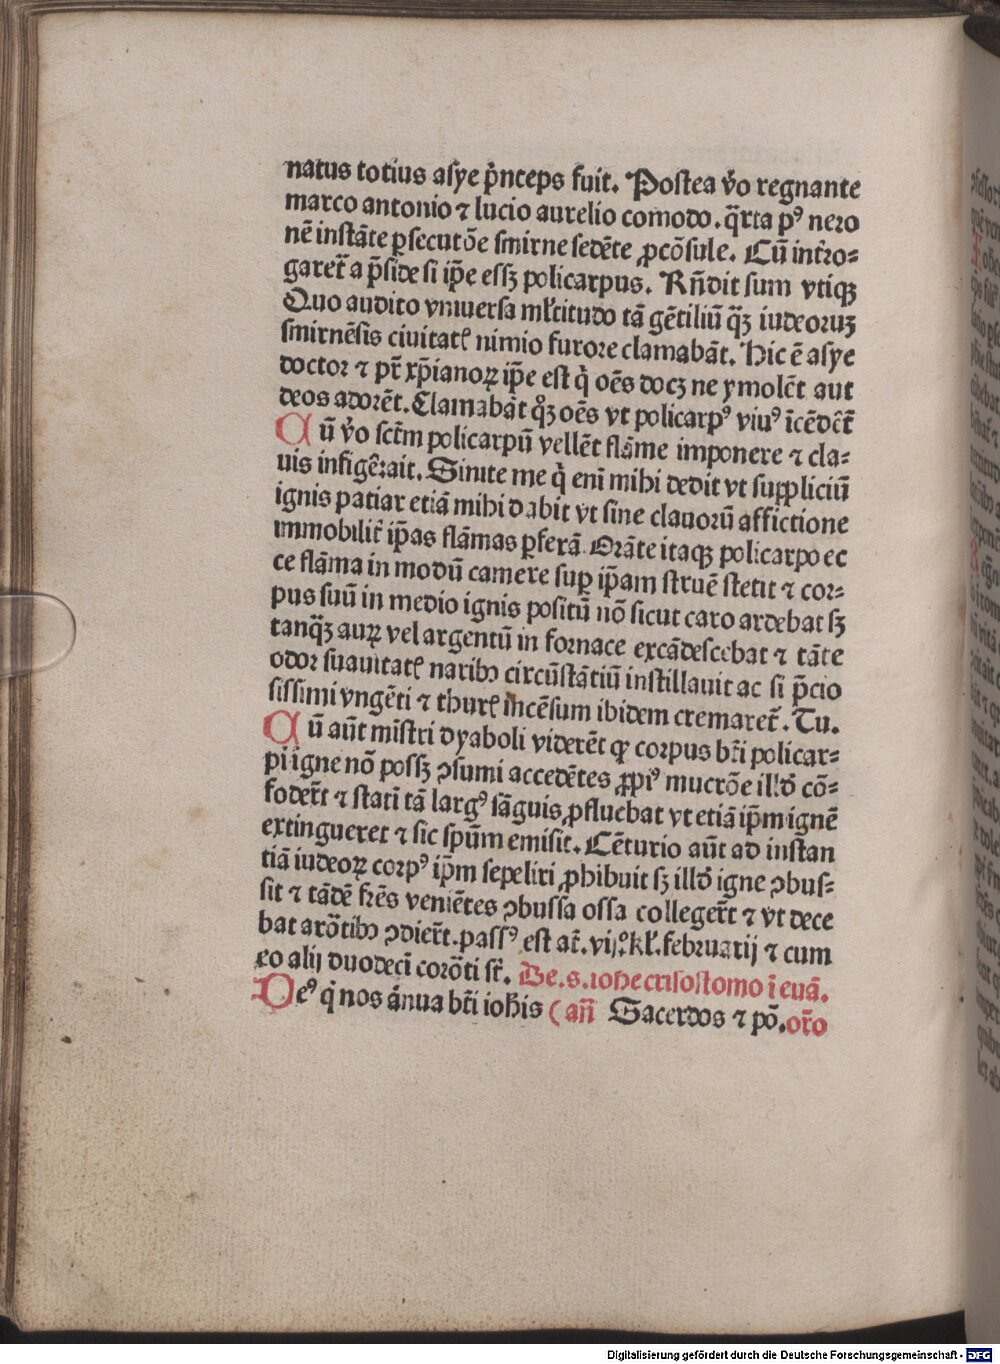 natus totius asye p̄nceps fuit. Postea v̄o regnante
marco antonio ⁊ lucio aurelio comodo. q̄rta pꝰ nero
nē instāte ꝑsecutōe smirne sedēte ꝓcōsule. Cū int̄ro⸗
garet̄ a p̄side si ip̄e essꝫ policarpus. Rn̄dit sum vtiqꝫ
Quo audito vniuersa ml̄titudo tā gētiliū qꝫ̄ iudeoruꝫ
smirnēsis ciuitatꝭ nimio furore clamabāt. Hic ē asye
doctor ⁊ pr̄ xp̄ianoꝝ ip̄e est q̇ oēs docꝫ ne ymolēt aut
deos adorēt. Clamabāt qꝫ̄ oēs vt policarpꝰ viuꝰ īcēdēt̄
Cū v̄o sctm̄ policarpū vellēt flāme imponere ⁊ cla⸗
uis infigē.ait. Sinite me q̇ eni mihi dedit vt suppliciū
ignis patiar etiā mihi dabit vt sine clauorū affictione
immobilit̄ ip̄as flāmas ꝑferā. Orāte itaqꝫ policarpo ec
ce flāma in modū camere suꝑ ip̄am struē stetit ⁊ cor⸗
pus suū in medio ignis positū nō sicut caro ardebat sꝫ
tanqꝫ̄ auꝝ vel argentū in fornace excādescebat ⁊ tāte
odor suauitatꝭ naribꝯ circūstātiū instillauit ac si p̄cio
sissimi vngēti ⁊ thurꝭ incēsum ibidem cremaret̄. Tu.
Cū aūt mīstri dyaboli viderēt ꝙ corpus bt̄i policar⸗
pi igne nō possꝫ ꝯsumi accedētes ꝓpiꝰ mucrōe illd̄ cō⸗
foder̄t ⁊ statī tā largꝰ sāguis ꝓfluebat vt etiā ip̄m ignē
extingueret ⁊ sic spūm emisit. Cēturio aūt ad instan
tiā iudeoꝝ corpꝰ ip̄m sepeliri ꝓhibuit sꝫ illd̄ igne ꝯbus⸗
sit ⁊ tādē fr̄es veniētes ꝯbussa ossa colleger̄t ⁊ vt dece
bat arōtibꝯ ꝯdier̄t. passꝰ est at̄. vij.° kl̄. februarij ⁊ cum
eo alij duodecī corōti sr̄. De .s. iohe crisostomo ī euā.
Deꝰ q̇ nos ānua bt̄i ioh̄is ( an̄ Sacerdos ⁊ pō. or̄o
Digitalisierung gefördert durch die Deutsche Forschungsgemeinschaft - DFG